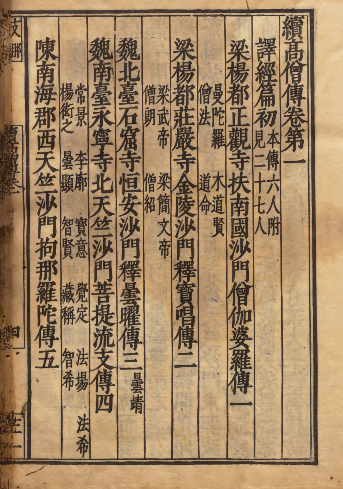 續高僧傳卷第一
譯經篇初 本傳六人附
見二十七人
梁楊都正觀寺扶南國沙門僧伽婆羅傳一
曼陀羅 木道賢
僧法 道命
梁楊都莊嚴寺金陵沙門釋寶唱傳二
梁武帝 梁簡文帝
僧朗 僧紹
魏北臺石窟寺恒安沙門釋曇曜傳三 曇靖
魏南臺永寧寺北天竺沙門菩提流支傳四
常景 李廓 寶意 覺定 法場
楊衒之 曇顯 智賢 藏稱 智希 法希
陳南海郡西天竺沙門拘那羅陀傳五